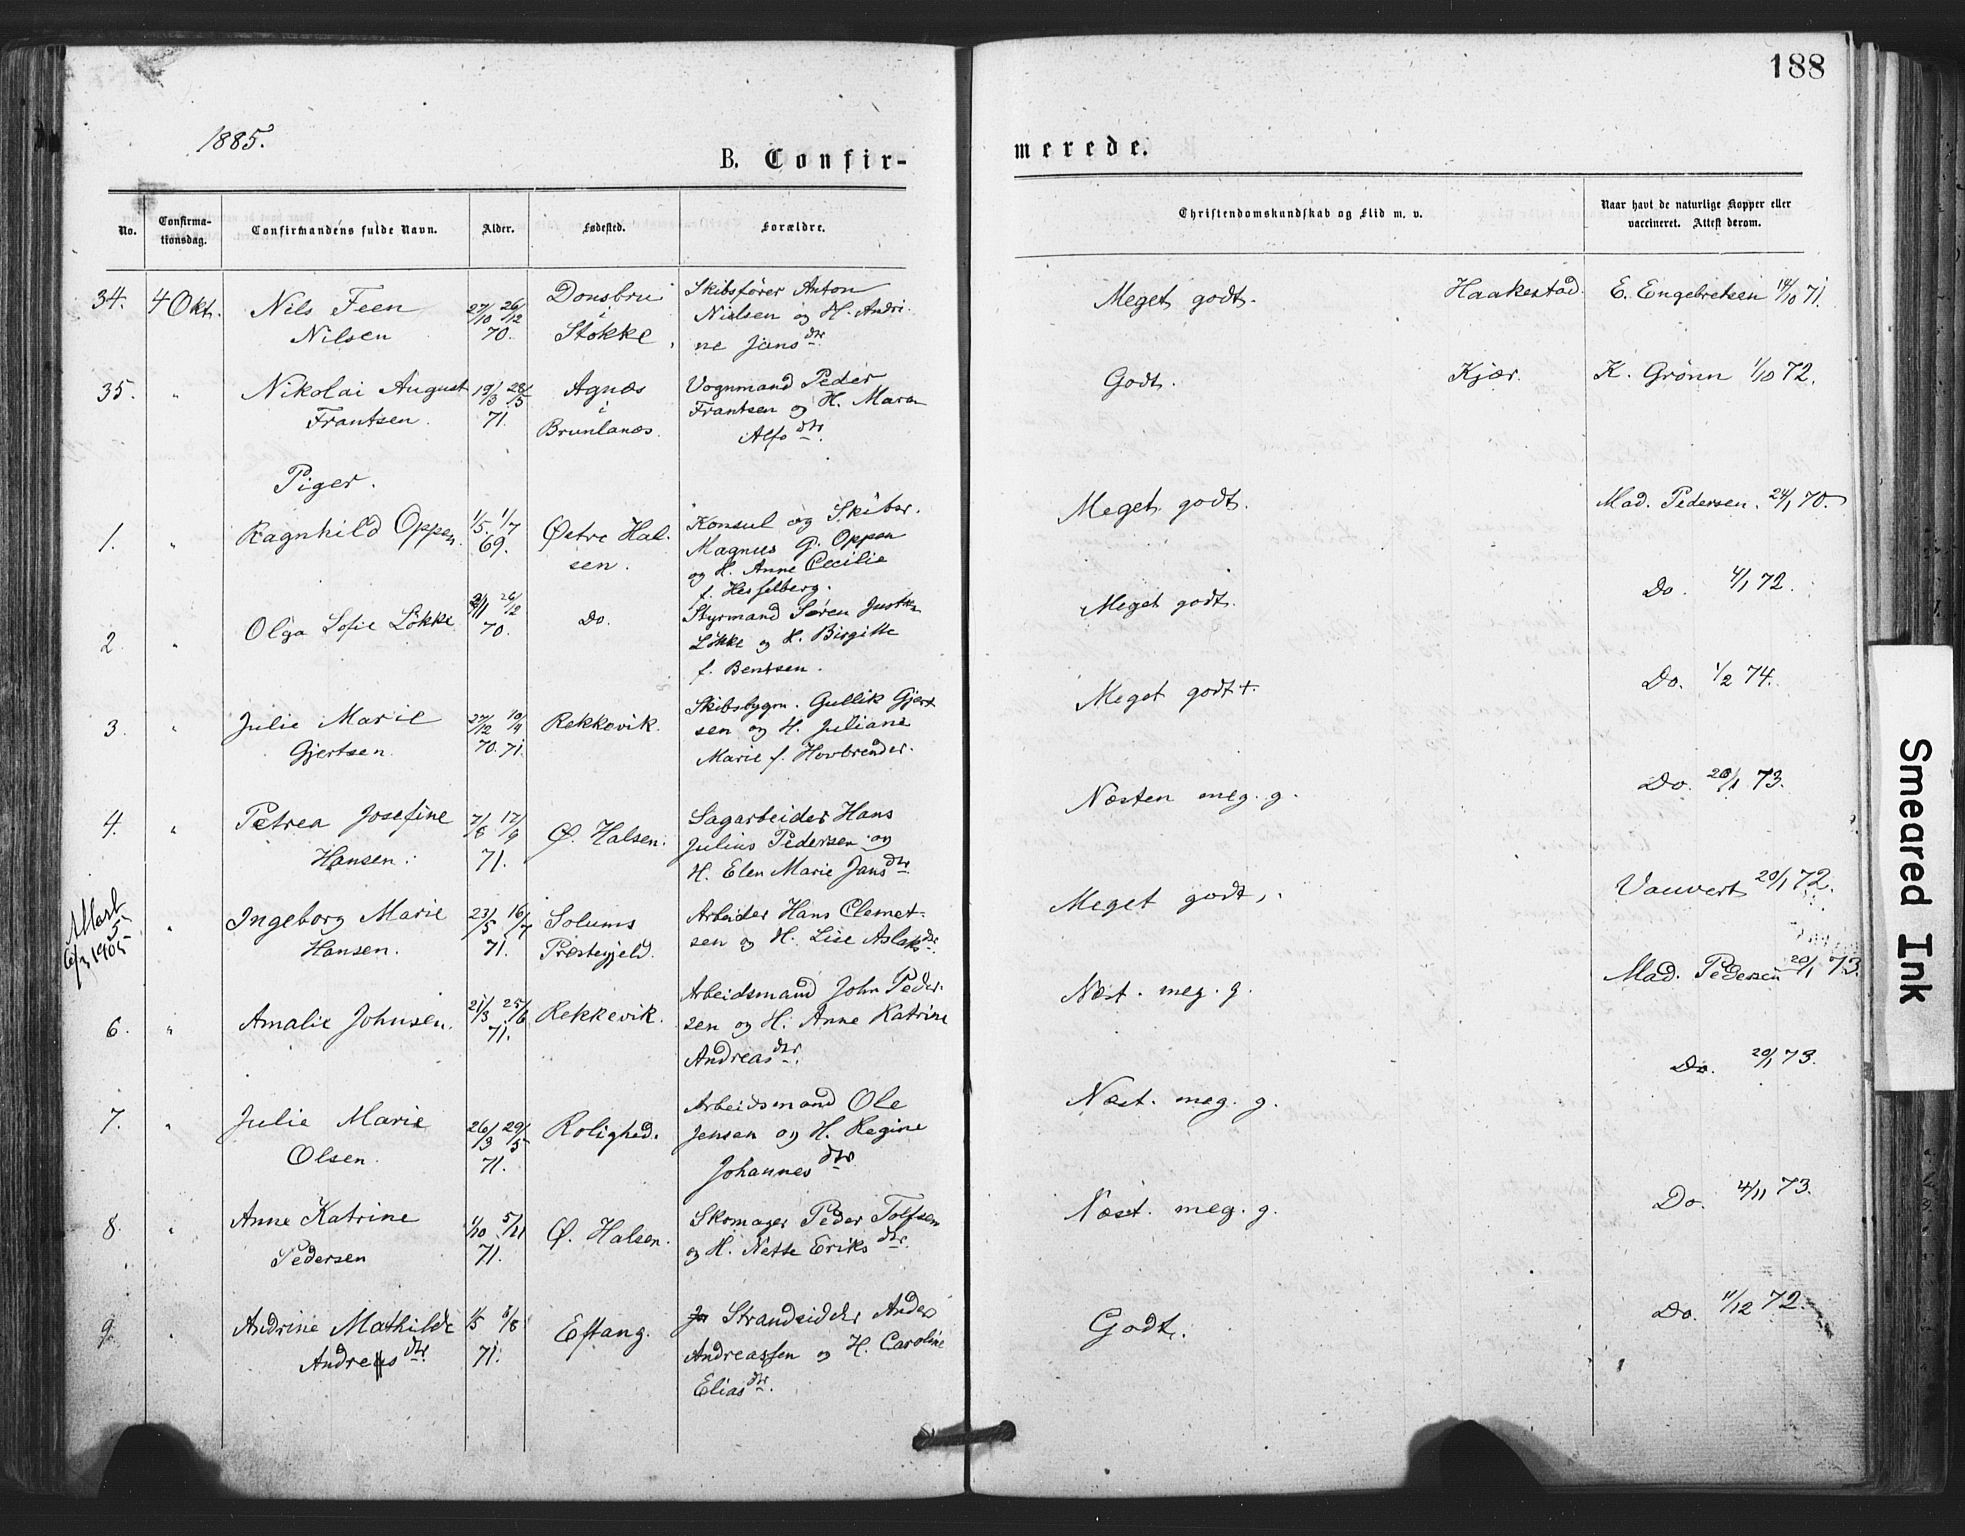 188
1885.
B. Confir-
merede.
No.
Confirma-
tionsdag.
Confirmandens fulde Navn.
Alder.
Fødested.
Forældre.
Christendomskundskab og Flid m. v.
Naar havt de naturlige Kopper eller
vaccineret. Attest derom.
34. 4 Okt. Nils Feen
Nilsen
27/10 26/12
70.
Donsbru
i
Stokke
Skibsfører Anton
Nielsen og H. Andri-
ne Jans dtr.
Meget godt. Haakestad E. Engebretsen 14/10 71.
35. " Nikolai August
Frantsen.
19/3 28/5
71.
Agnæs
i
Brunlanæs.
Vognmand Peder
Frantsen og H. Maren
Alfs dtr.
Godt. Kjær. K. Grönn 1/10 72.
Piger.
1. " Ragnhild Oppen.
1/5. 1/7
69.
Østre Hal-
sen.
Konsul og Skibsr.
Magnus G. Oppen
og H. Anne Cecilie
f. Hesselberg.
Meget godt. Mad. Pedersen. 24/1 70.
2 " Olga Sofie Lökke
26/12
70.
Do.
Styrmand Søren
Lökke og H. Birgitte
f. Bentsen.
Meget godt. Do. 4/1 72.
3 " Julie Marie
Gjertsen.
27/12 10/4
70. 71.
Rekkevik.
Skibsbygm. Gullik Gjert
sen og H. Juliane
Marie f. Hovbrender.
Meget godt+. Do. 1/2 74.
4. " Petrea Josefine
Hansen.
7/8 17/9
71.
Ø. Halsen.
Sagarbeider Hans
Julius Pedersen og
H. Elen Marie Jans dtr.
Næsten meg. g. Do. 20/1 73.
Attest
5
6/3 1905
" Ingeborg Marie
Hansen.
23/5 16/7
71.
Solums
Præstegjeld.
Arbeider Hans Clemet-
sen og H. Lise Aslaks dtr.
Meget godt. Vauvert 20/1 72.
6. " Amalie Johnsen.
21/3 25/6
71.
Rekkevik.
Arbeidsmand John Peder-
sen og H. Anne Katrine
Andreas dtr.
Næst. meg. g. Mad. Pedersen 20/1 73.
7. " Julie Marie
Olsen
26/3 29/5
71.
Rolighed.
Arbeidsmand Ole
Jensen og H. Regine
Johannes dtr.
Næst. meg. g. Do. 20/1 73.
8. " Anne Katrine
Pedersen
1/10 5/11
71.
Ø. Halsen.
Skomager Peder Tolfsen
og H. Nette Eriks dtr.
Næst. meg. g. Do. 4/11 73.
9. " Andrine Mathilde
Andreas dtr.
1/5 6/8
71.
Eftang.
Strandsidder Anders
Andreassen og H. Caroline
Elias dtr.
Godt. Do. 11/12 72.
Smeared Ink